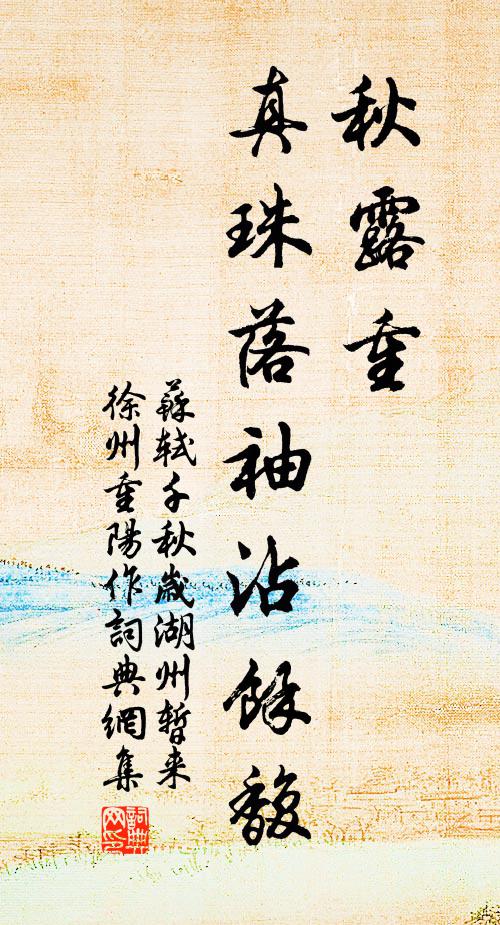 秋露重
真珠落袖沾餘馥
蘇軾千秋歲湖州暫来
徐州重陽作詞典網集
詞典網印